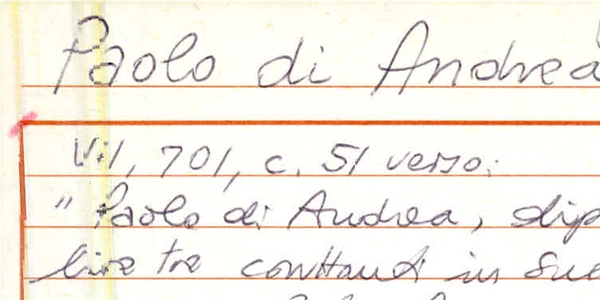 Paolo di Andrea
Vil, 701, c. 51 verso:
" Paolo di Andrea, dip
lire tre conttanti in sue